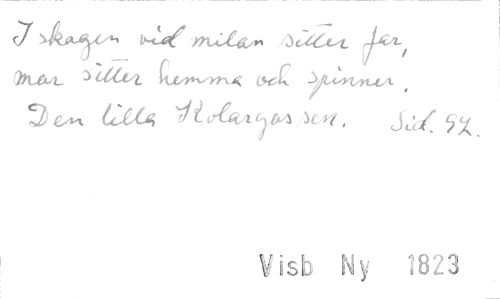 I skogen vid milan sitter far,
mor sitter hemma och spinner.
Den lilla Kolargossen. Sid. 92.
Visb Ny 1823